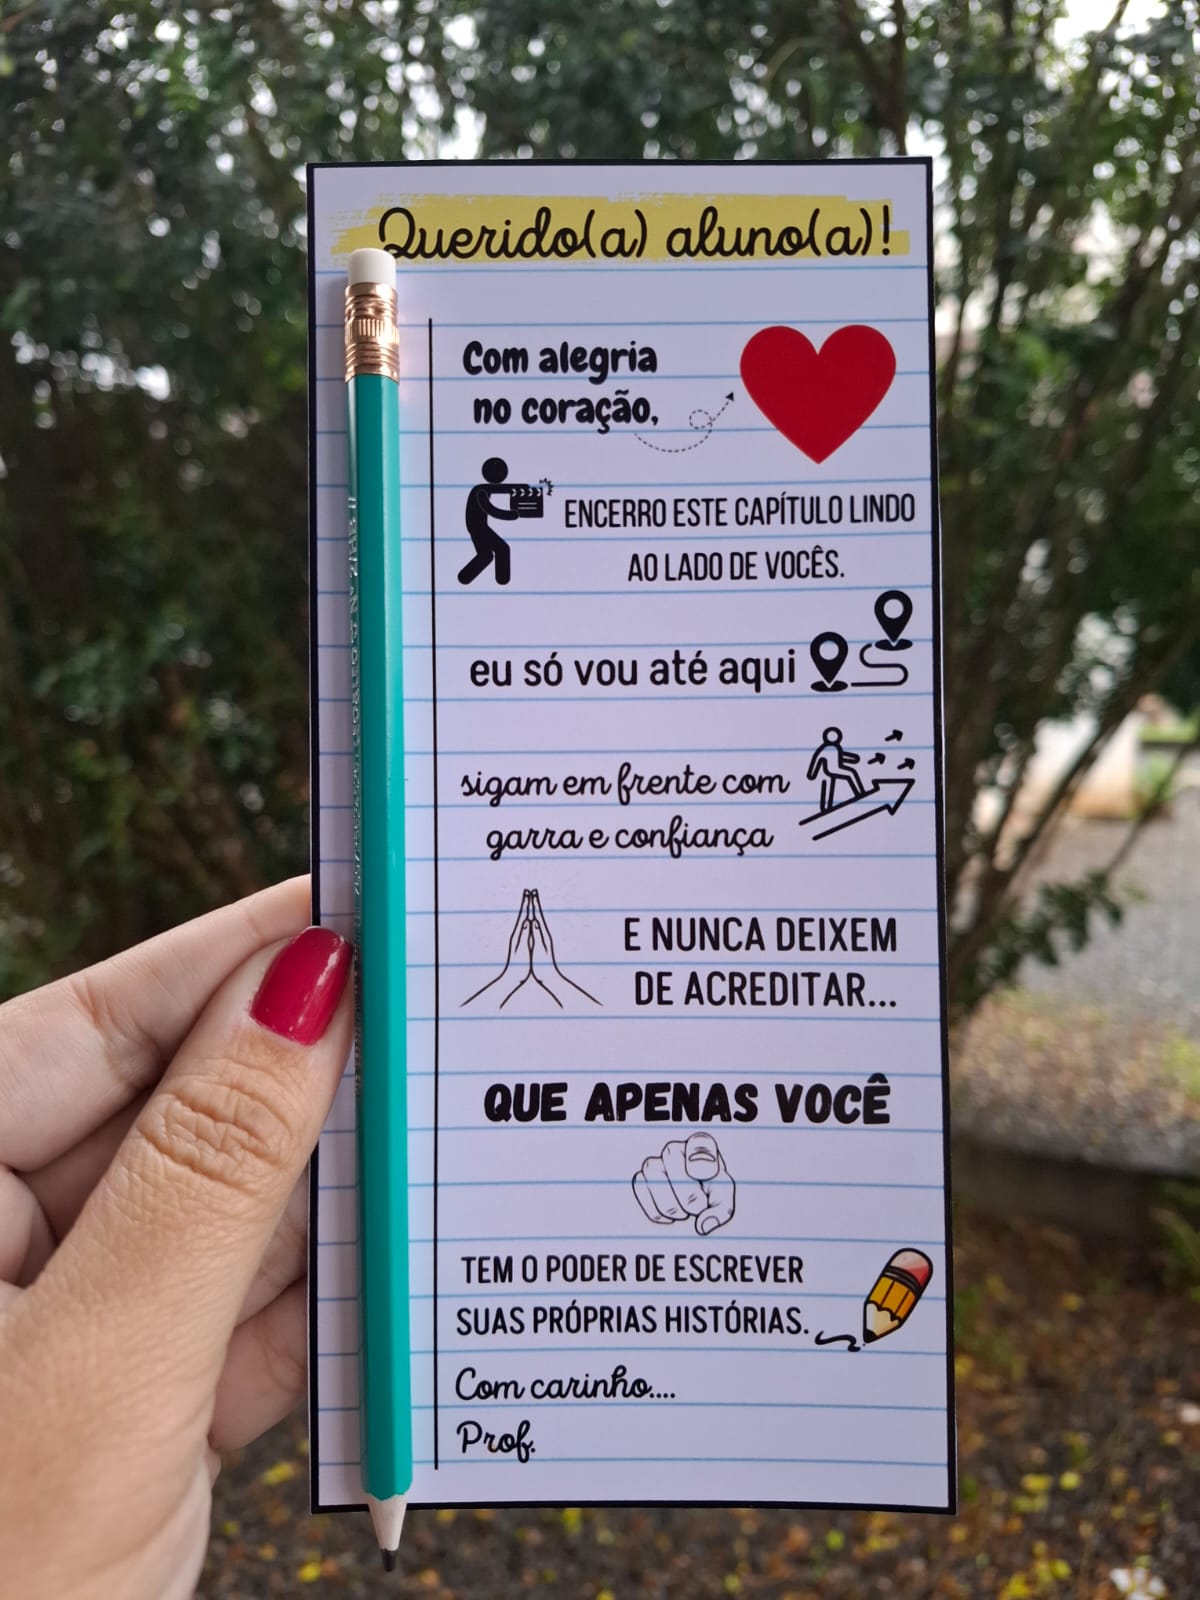 Querido(a) aluno(a)!
Com alegria
no coração,
ENCERRO ESTE CAPÍTULO LINDO
AO LADO DE VOCÊS.
eu só vou até aqui
sigam em frente com
garra e confiança
E NUNCA DEIXEM
DE ACREDITAR...
QUE APENAS VOCÊ
TEM O PODER DE ESCREVER
SUAS PRÓPRIAS HISTÓRIAS.
Com carinho....
Prof.